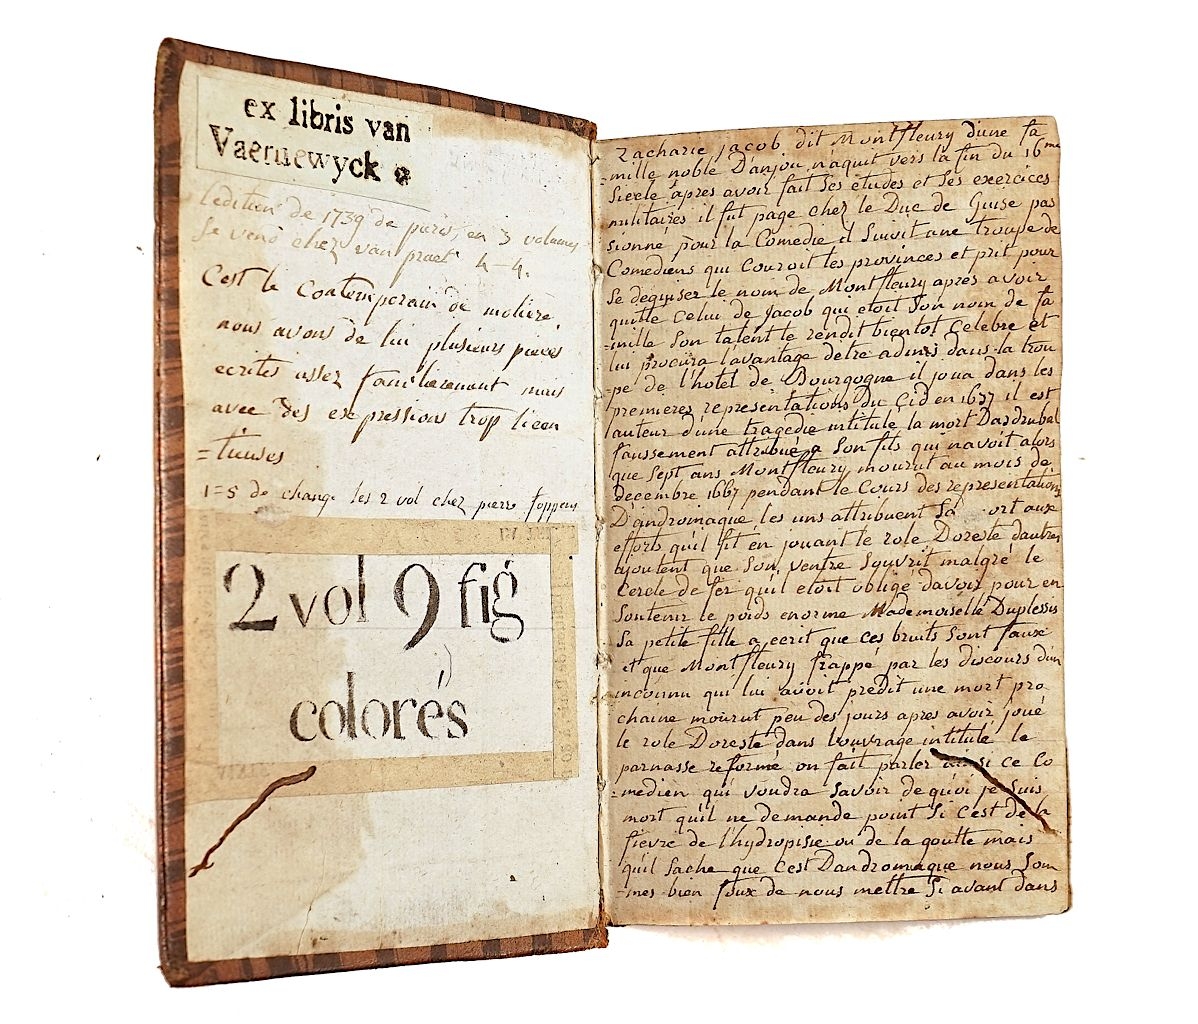 ex libris van
Vaernewyck
l'edition de 1739 de paris, en 3 volumes
se vend chez van praet 4-4.
C'est le Contemporain de moliere,
nous avons de lui plusieurs pieces
ecrites assez familierement mais
avec des expressions trop licen
=tieuses
1=5 de change les 2 vol chez pierre
2 vol 9 fig
colorés
Zacharie jacob dit Montfleury d'une fa
=mille noble D'anjou náquit vers la fin du 16me
Siecle ápres avoir fait Ses études et Ses exercices
militaires il fut page chez le Duc de Guise pas
sionné pour la Comedie il Suivit une troupe de
Comediens qui Couroit les provinces et prit pour
Se deguiser le nom de Montfleury apres avoir
quitte Celui de jacob qui etoit Son nom de fa
=mille Son talent le rendit bientot Celebre et
lui procura l'avantage detre admis dans la trou
=pe de l'hotel de Bourgogne il joua dans les
premieres representations Du Cid en 1637 il est
auteur d'une tragedie intitule la mort Dasdrubal
faussement attribué a Son fils qui n'avoit alors
que Sept ans Montfleury mourut au mois de
Decembre 1667 pendant le Cours des representations
D'andromaque les uns attribuent Sa ort aux
efforts qu'il fit en jouant le role Doreste d'autres
ajoutent que Son ventre S'ouvrit malgré le
Cercle de fer qu'il etoit obligé d'avoir pour en
Soutenir le poids enorme Mademoiselle Duplessis
Sa petite fille a ecrit que ces bruits Sont faux
et que Montfleury frappé par les discours d'un
inconnu qui lui avoit prédit une mort pro
chaine mourut peu des jours apres avoir joué
le role Doreste dans l'ouvrage intitulé le
parnasse reformé on fait parler ainsi ce Co
=medien qui voudra Savoir de quoi je Suis
mort qu'il ne demande point Si c'est de la
fievre de l'hydropisie ou de la goutte mais
qu'il Sache que C'est Dandromaque nous Som
=mes bien foux de nous mettre Si avant dans